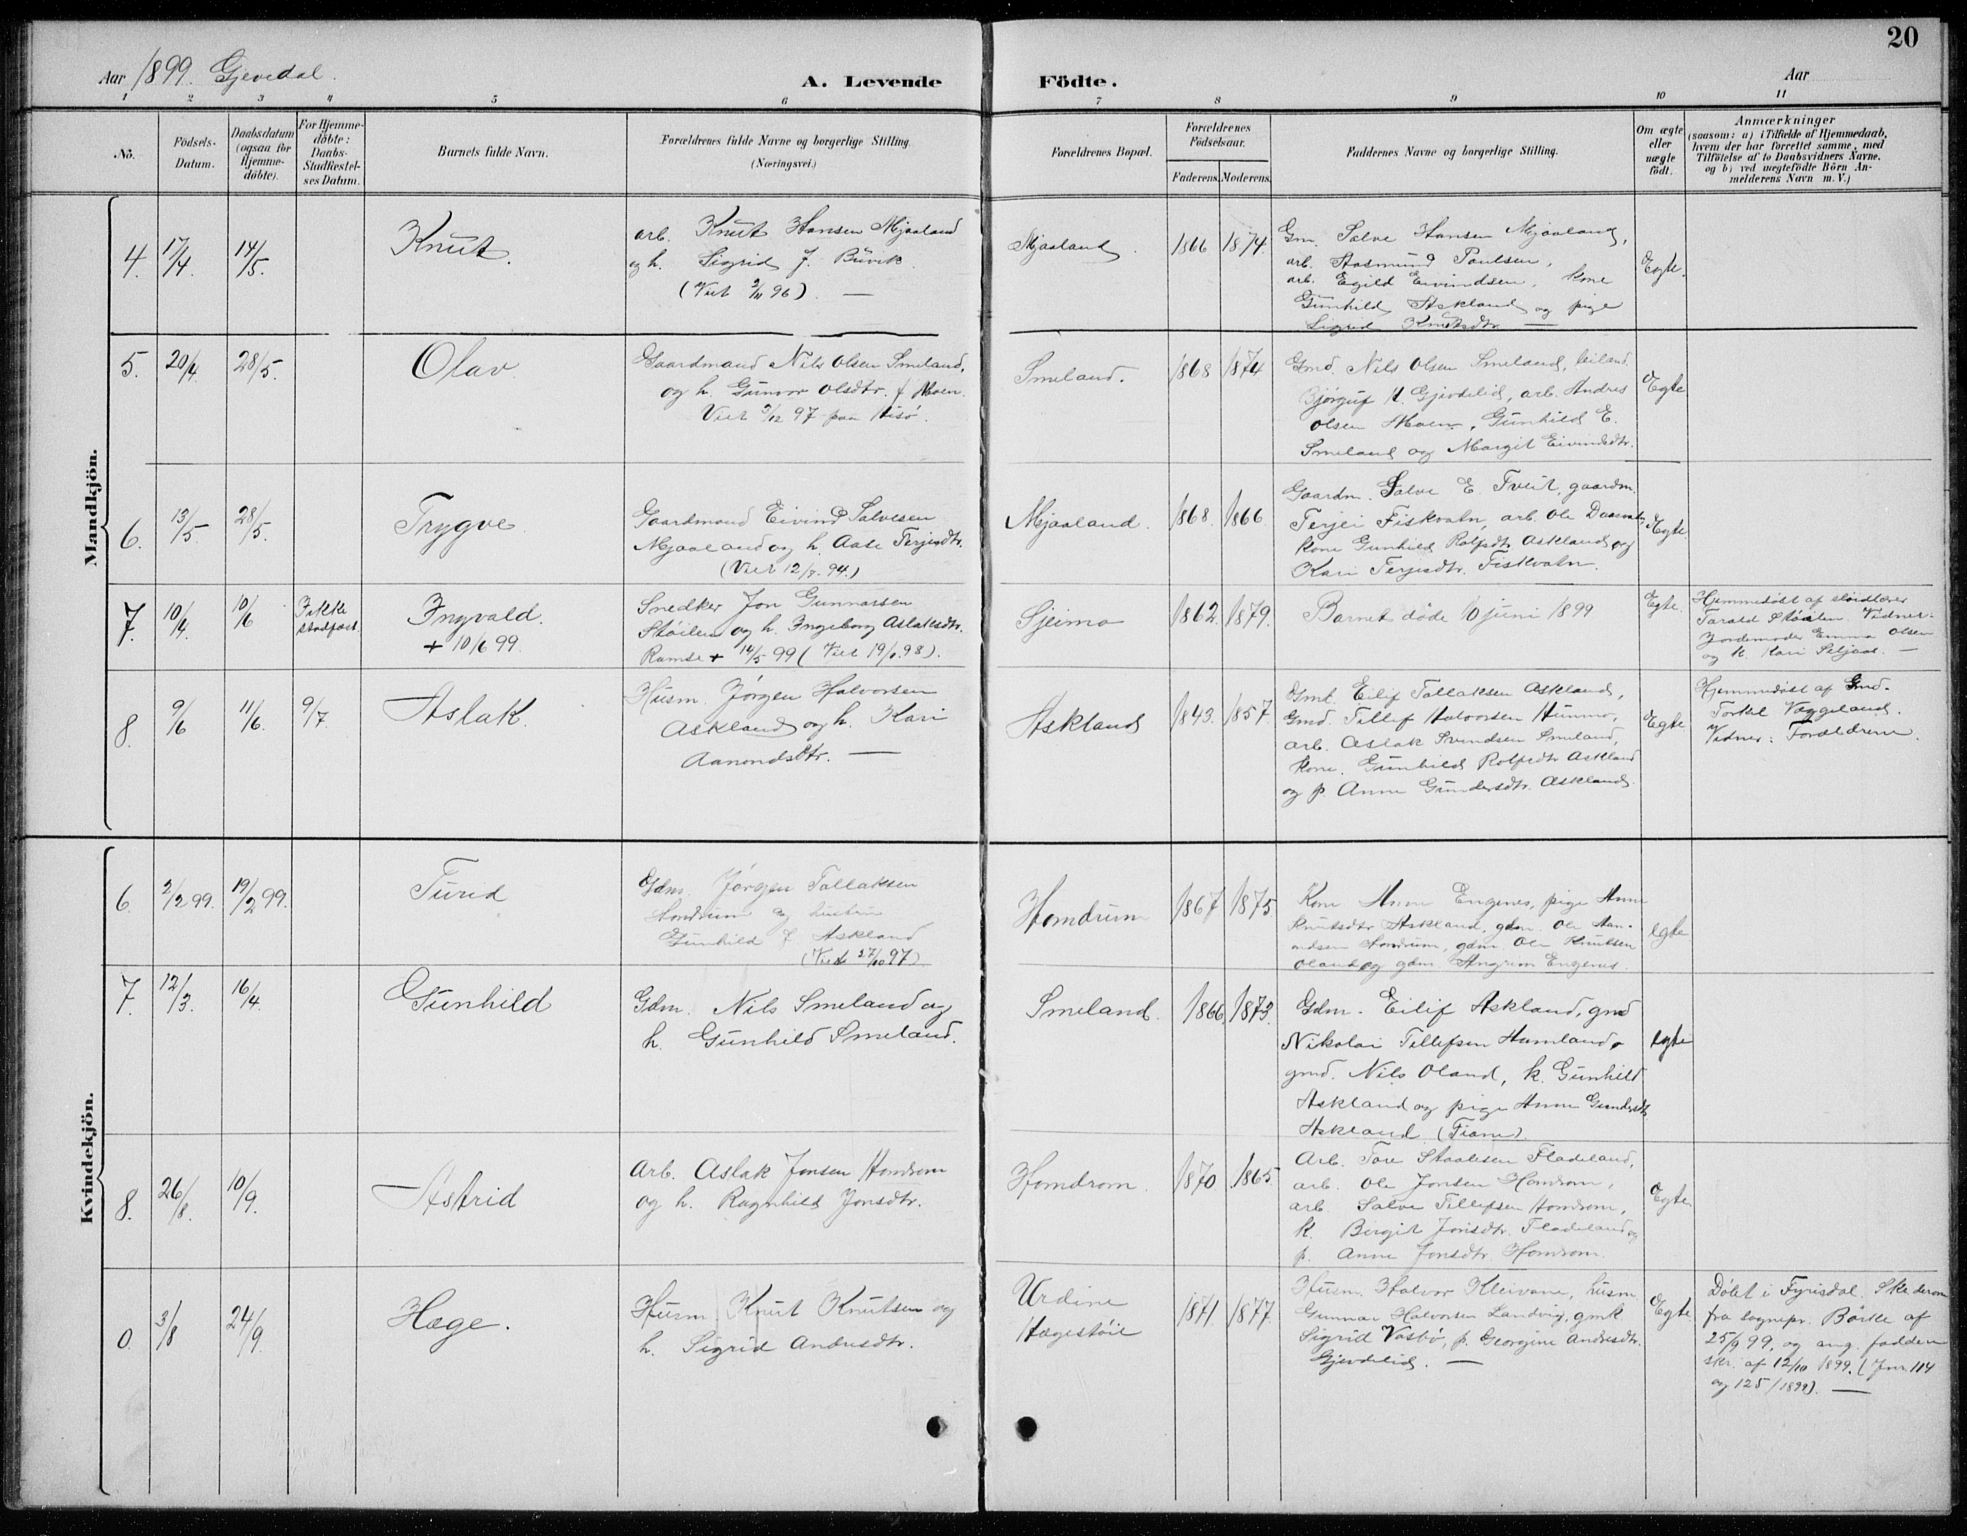 20
Aar 1899. Gjevedal.
A. Levende Födte.
Aar
1 2 3 4 5 6 7 8 9 10 11
No.
Födsels-Datum.
Daabsdatum (ogsaa for Hjemme-döbte).
For Hjemme-döbte: Daabs-Stadfæstel-ses Datum.
Barnets fulde Navn.
Forældrenes fulde Navne og borgerlige Stilling (Næringsvei.)
Forældrenes Bopæl.
Forældrenes Födselsaar.
Faderens. Moderens.
Faddernes Navne og borgerlige Stilling.
Om ægte eller uægte födt.
Anmærkninger
(saasom: a) i Tilfælde af Hjemmedaab,
hvem der har forrettet samme, med
Tilföielse af to Daabsvidners Navne,
og b) ved uægtefödte Börn An-
melderens Navn m. V.)
Mandkjön.
4. 17/4 14/5. Knut.
arb. Knut Hansen Mjaaland
og h. Sigrid J. Büvik
(Viet 2/11 96). —
Mjaaland. 1866 1874.
Gm. Salve Hansen Mjaaland,
arb. Aasmund Paulsen,
arb. Egild Eivindsen, kone
Gunhild Askland og pige
Sigrid Knutsdtr. —
Egte.
5. 20/4. 28/5. Olav.
Gaardmand Nils Olsen Smeland,
og h. Gunvor Olsdtr. f. Moen.
Viet 3/12 97 paa Hisö.
Smeland. 1868 1874
Gmd. Nils Olsen Smeland, leiland.
Bjørguf N. Gjevdelid, arb. Andres
Olsen Moen, Gunhild E.
Smeland og Margit Eivindsdtr.
Egte
6. 13/5. 28/5. Trygve
Gaardmand Eivind Salvesen
Mjaaland og h. Aase Terjesdtr.
(Viet 12/8. 94.)
Mjaaland. 1868. 1866
Gaardm. Salve E. Tveit, gaardm.
Terjei Fiskvatn, arb. Ole
kone Gunhild Rolfsdtr Askland og
Kari Terjesdtr. Fiskvatn.
Egte
7. 10/4. 10/6 Ikke stadfæst. Ingvald.
+ 10/6 99.
Snedker Jon Gunnarsen
Støilen og h. Ingeborg Aslaksdtr.
Ramse + 14/5 99 (Viet 98).
Sjeimo 1862. 1879.
Barnet døde 10 juni 1899
Egte.
Hjemmedøbt af sløidlærer
Tarald Støilen. Vidner:
Jordemoder Emma Olsen
og k. Kari Seljaas. —
8. 9/6 11/6. 9/7 Aslak.
Husm. Jørgen Halvorsen
Askland og h. Kari
Aanondsdtr. —
Askland 1843. 1857.
Gmt. Eilif Tallaksen Askland,
Gmd. Tillef Halvorsen
arb. Aslak Svendsen Smeland,
kone. Gunhild Rolfsdtr Askland
og p. Anne Gundersdtr. Askland.
Egte
Hjemmedøbt af Gmd.
Torkel Væggeland.
Vidner: Forældrene.
Kvindekjön.
6. 2/2 99. 19/2 99. Turid
Gdm. Jørgen Tallaksen
Homdrum og hustru
Gunhild f. Askland
(Viet 27/10 97)
Homdrum 1867 1875
Kone Anne Engenes, pige Anne
Knutsdtr Askland, gdm. Ole Aan-
ondsen Homdrum, gdm. Ole Knutsen
Oland og gdm. Angrim Engenes.
egte
7. 12/3. 16/4. Gunhild
Gdm. Nils Smeland og
h. Gunhild Smeland.
Smeland. 1866 1873.
Gdm. Eilif Askland, gmd
Nikolai Tillefsen Hamland,
gmd. Nils Oland, k. Gunhild
Askland og pige Anne Gundersdtr
Askland (Fiane).
egte
8. 26/8. 10/9. Astrid
Arb. Aslak Jonsen Homdrom
og h. Ragnhild Jonsdtr.
Homdrom. 1870 1865
Arb. Tore Staalesen Fladeland,
arb. Ole Jonsen Homdrom,
arb. Salve Tillefsen Homdrom,
k. Birgit Jonsdtr. Fladeland og
p. Anne Jonsdtr. Homdrom.
Egte
0 3/8 24/9. Hæge.
Husm Knut Knutsen og
h. Sigrid Andresdtr.
Urdine
Hægestøil
1871. 1877
Husm. Halvor Kleivane, husm
Gunnar Halvorsen Landvig, gmk
Sigrid Vasbø, p. Georgine Andresdtr.
Gjevdelid. —
Egte
Døbt i Fyrisdal. Skr derom
fra sognepr. Börke af
25/9 99, og ang. fadden
skr. af 12/10 1899. (Jnr. 114
og 125/1899). —